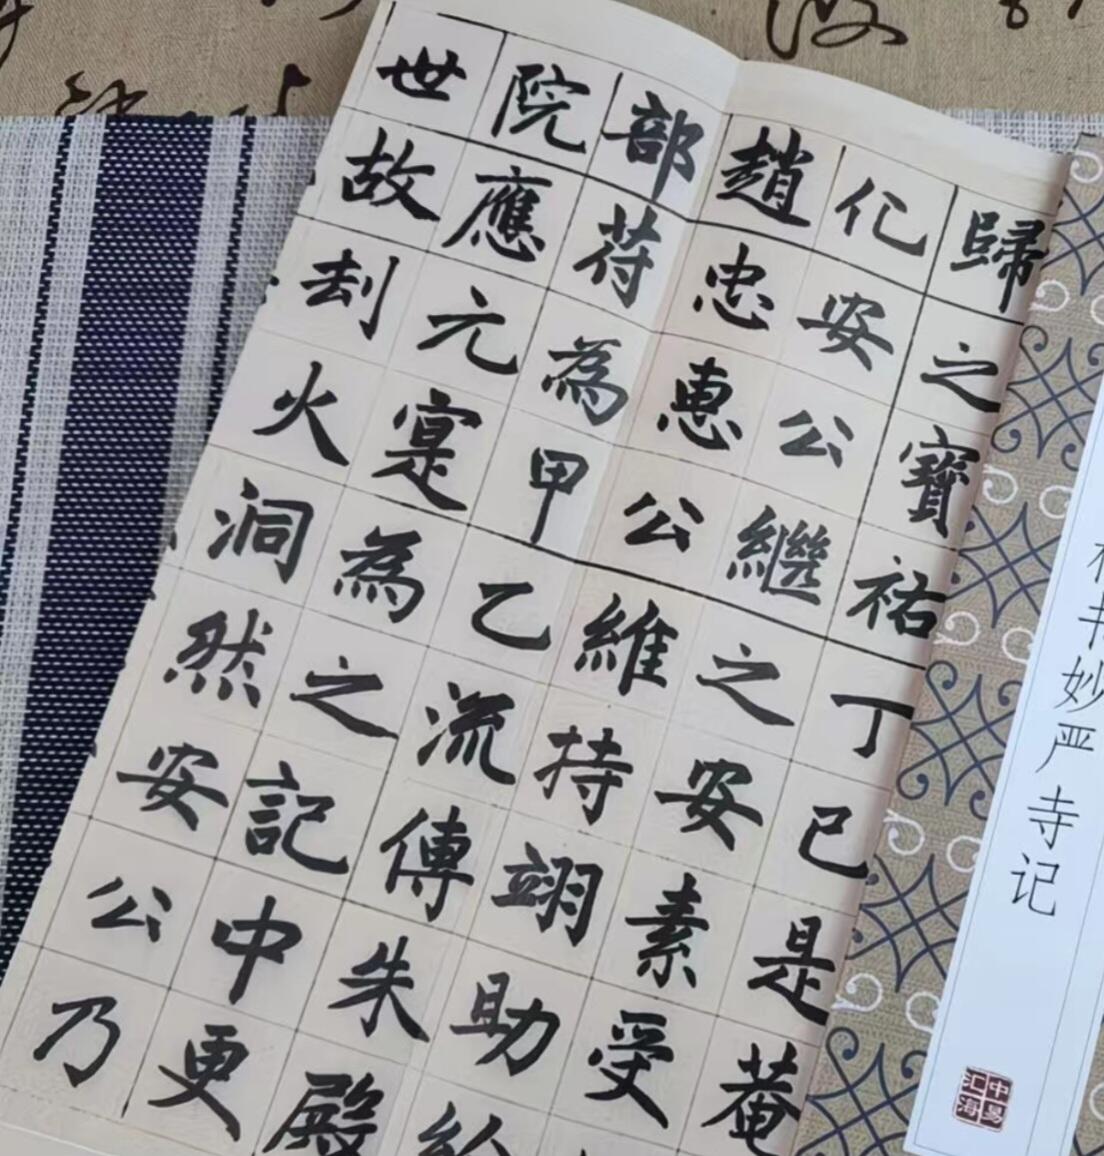 歸之寶祐丁已是菴
化安公繼之安素受
趙忠恵公維持翊助給
部苻為甲乙流傳朱殿
院應元寔為之記中更
世故刦火洞然安公乃
书妙严寺记
中易
汇海